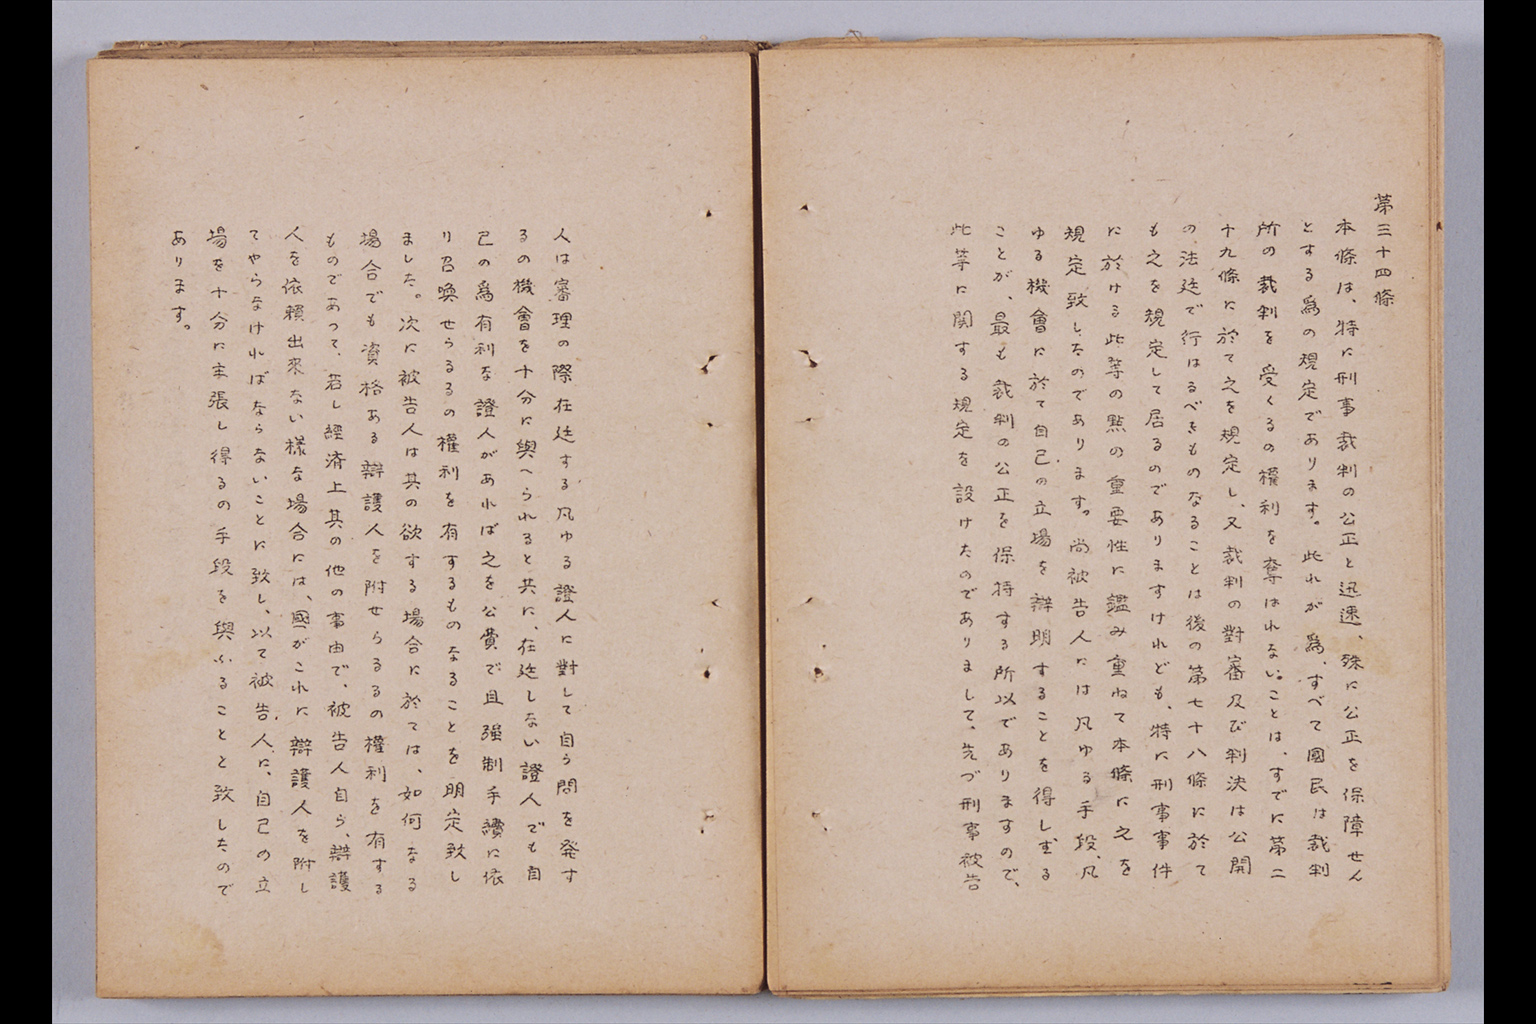 第三十四條
本條は、特に刑事裁判の公正と迅速、殊に公正を保障せん
とする爲の規定であります。此れが爲、すべて國民は裁判
所の裁判を受くるの權利を奪はれないことは、すでに第二
十九條に於て之を規定し、又裁判の對審及び判決は公開
の法廷で行はるべきものなることは後の第七十八條に於て
も之を規定して居るのでありますけれども、特に刑事事件
に於ける此等の點の重要性に鑑み重ねて本條に之を
規定致したのであります。尚被告人には凡ゆる手段、凡
ゆる機會に於て自己の立場を辯明することを得しむる
ことが、最も裁判の公正を保持する所以でありますので、
此等に関する規定を設けたのでありまして、先づ刑事被告
人は審理の際在廷する凡ゆる證人に對して自ら問を発す
るの機會を十分に與へられると共に、在廷しない證人でも自
己の爲有利な證人があれば之を公費で且强制手續に依
り召喚せらるるの權利を有するものなることを明定致し
ました。次に被告人は其の欲する場合に於ては、如何なる
場合でも資格ある辯護人を附せらるるの權利を有する
ものであつて、若し經済上其の他の事由で、被告人自ら、辯護
人を依賴出來ない樣な場合には、國がこれに辯護人を附し
てやらなければならないことに致し、以て被告人に、自己の立
場を十分に主張し得るの手段を與ふることと致したので
あります。